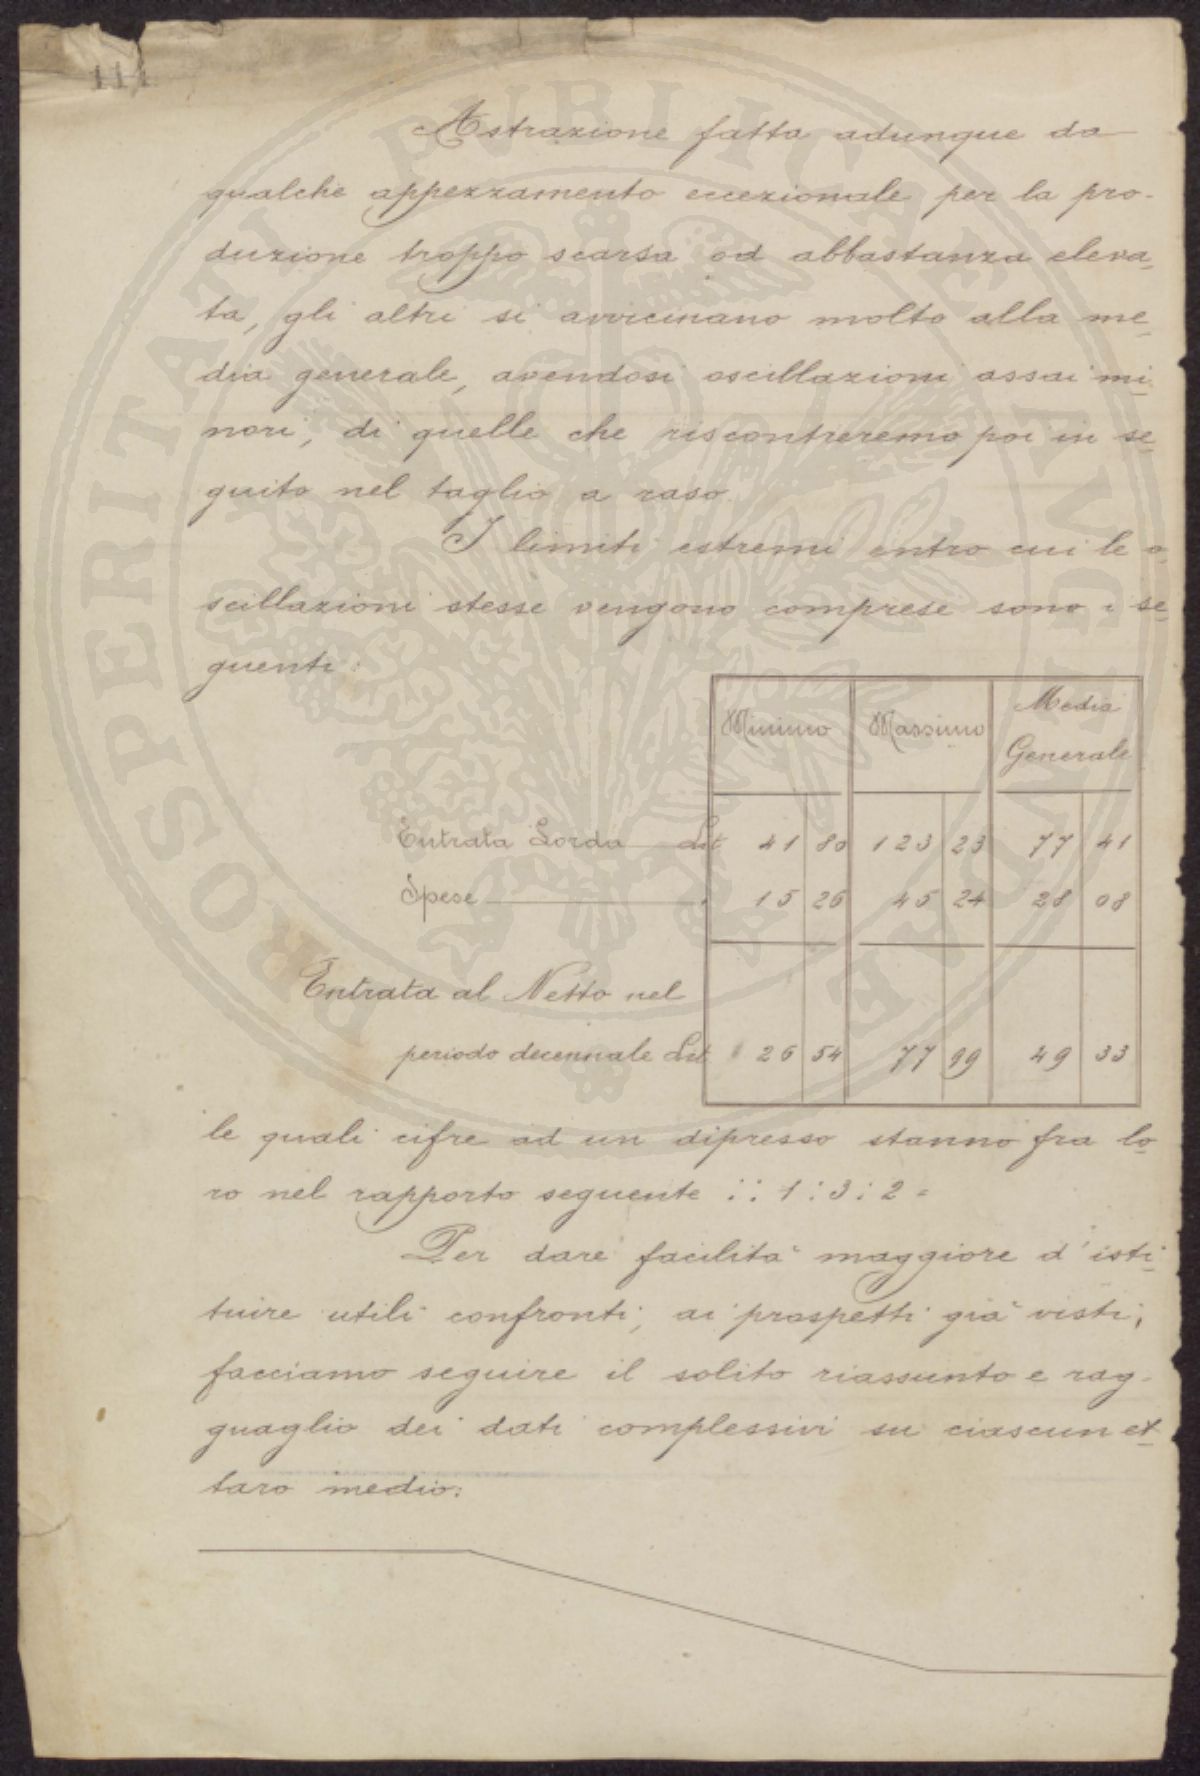 111
Astrazione fatta adunque da
qualche appezzamento eccezionale per la pro-
duzione troppo scarsa od abbastanza eleva-
ta, gli altri si avvicinano molto alla me-
dia generale, avendosi oscillazioni assai mi-
nori, di quelle che riscontreremo poi in se-
guito nel taglio a raso.
I limiti estremi entro cui le o-
scillazioni stesse vengono comprese sono i se-
guenti:
Minimo Massimo Media Generale
Entrata Lorda Lit 41 80 123 23 77 41
Spese " 15 26 45 24 28 08
Entrata al Netto nel
periodo decennale Lit. 26 54 77 99 49 33
le quali cifre ad un dipresso stanno fra lo-
ro nel rapporto seguente :: 1 : 3 : 2 =
Per dare facilità maggiore d'isti-
tuire utili confronti, ai prospetti già visti,
facciamo seguire il solito riassunto e rag-
guaglio dei dati complessivi su ciascun et-
taro medio:
PROSPERITATI PVBLICAE AVGENDAE